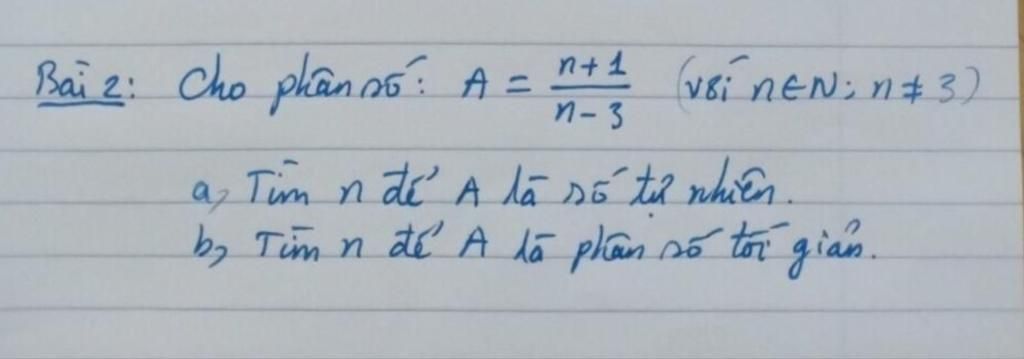 Bài 2: Cho phân số: A = \frac{n+1}{n-3} (với n ∈ N; n ≠ 3)
a, Tìm n để A là số tự nhiên.
b, Tìm n để A là phân số tối giản.